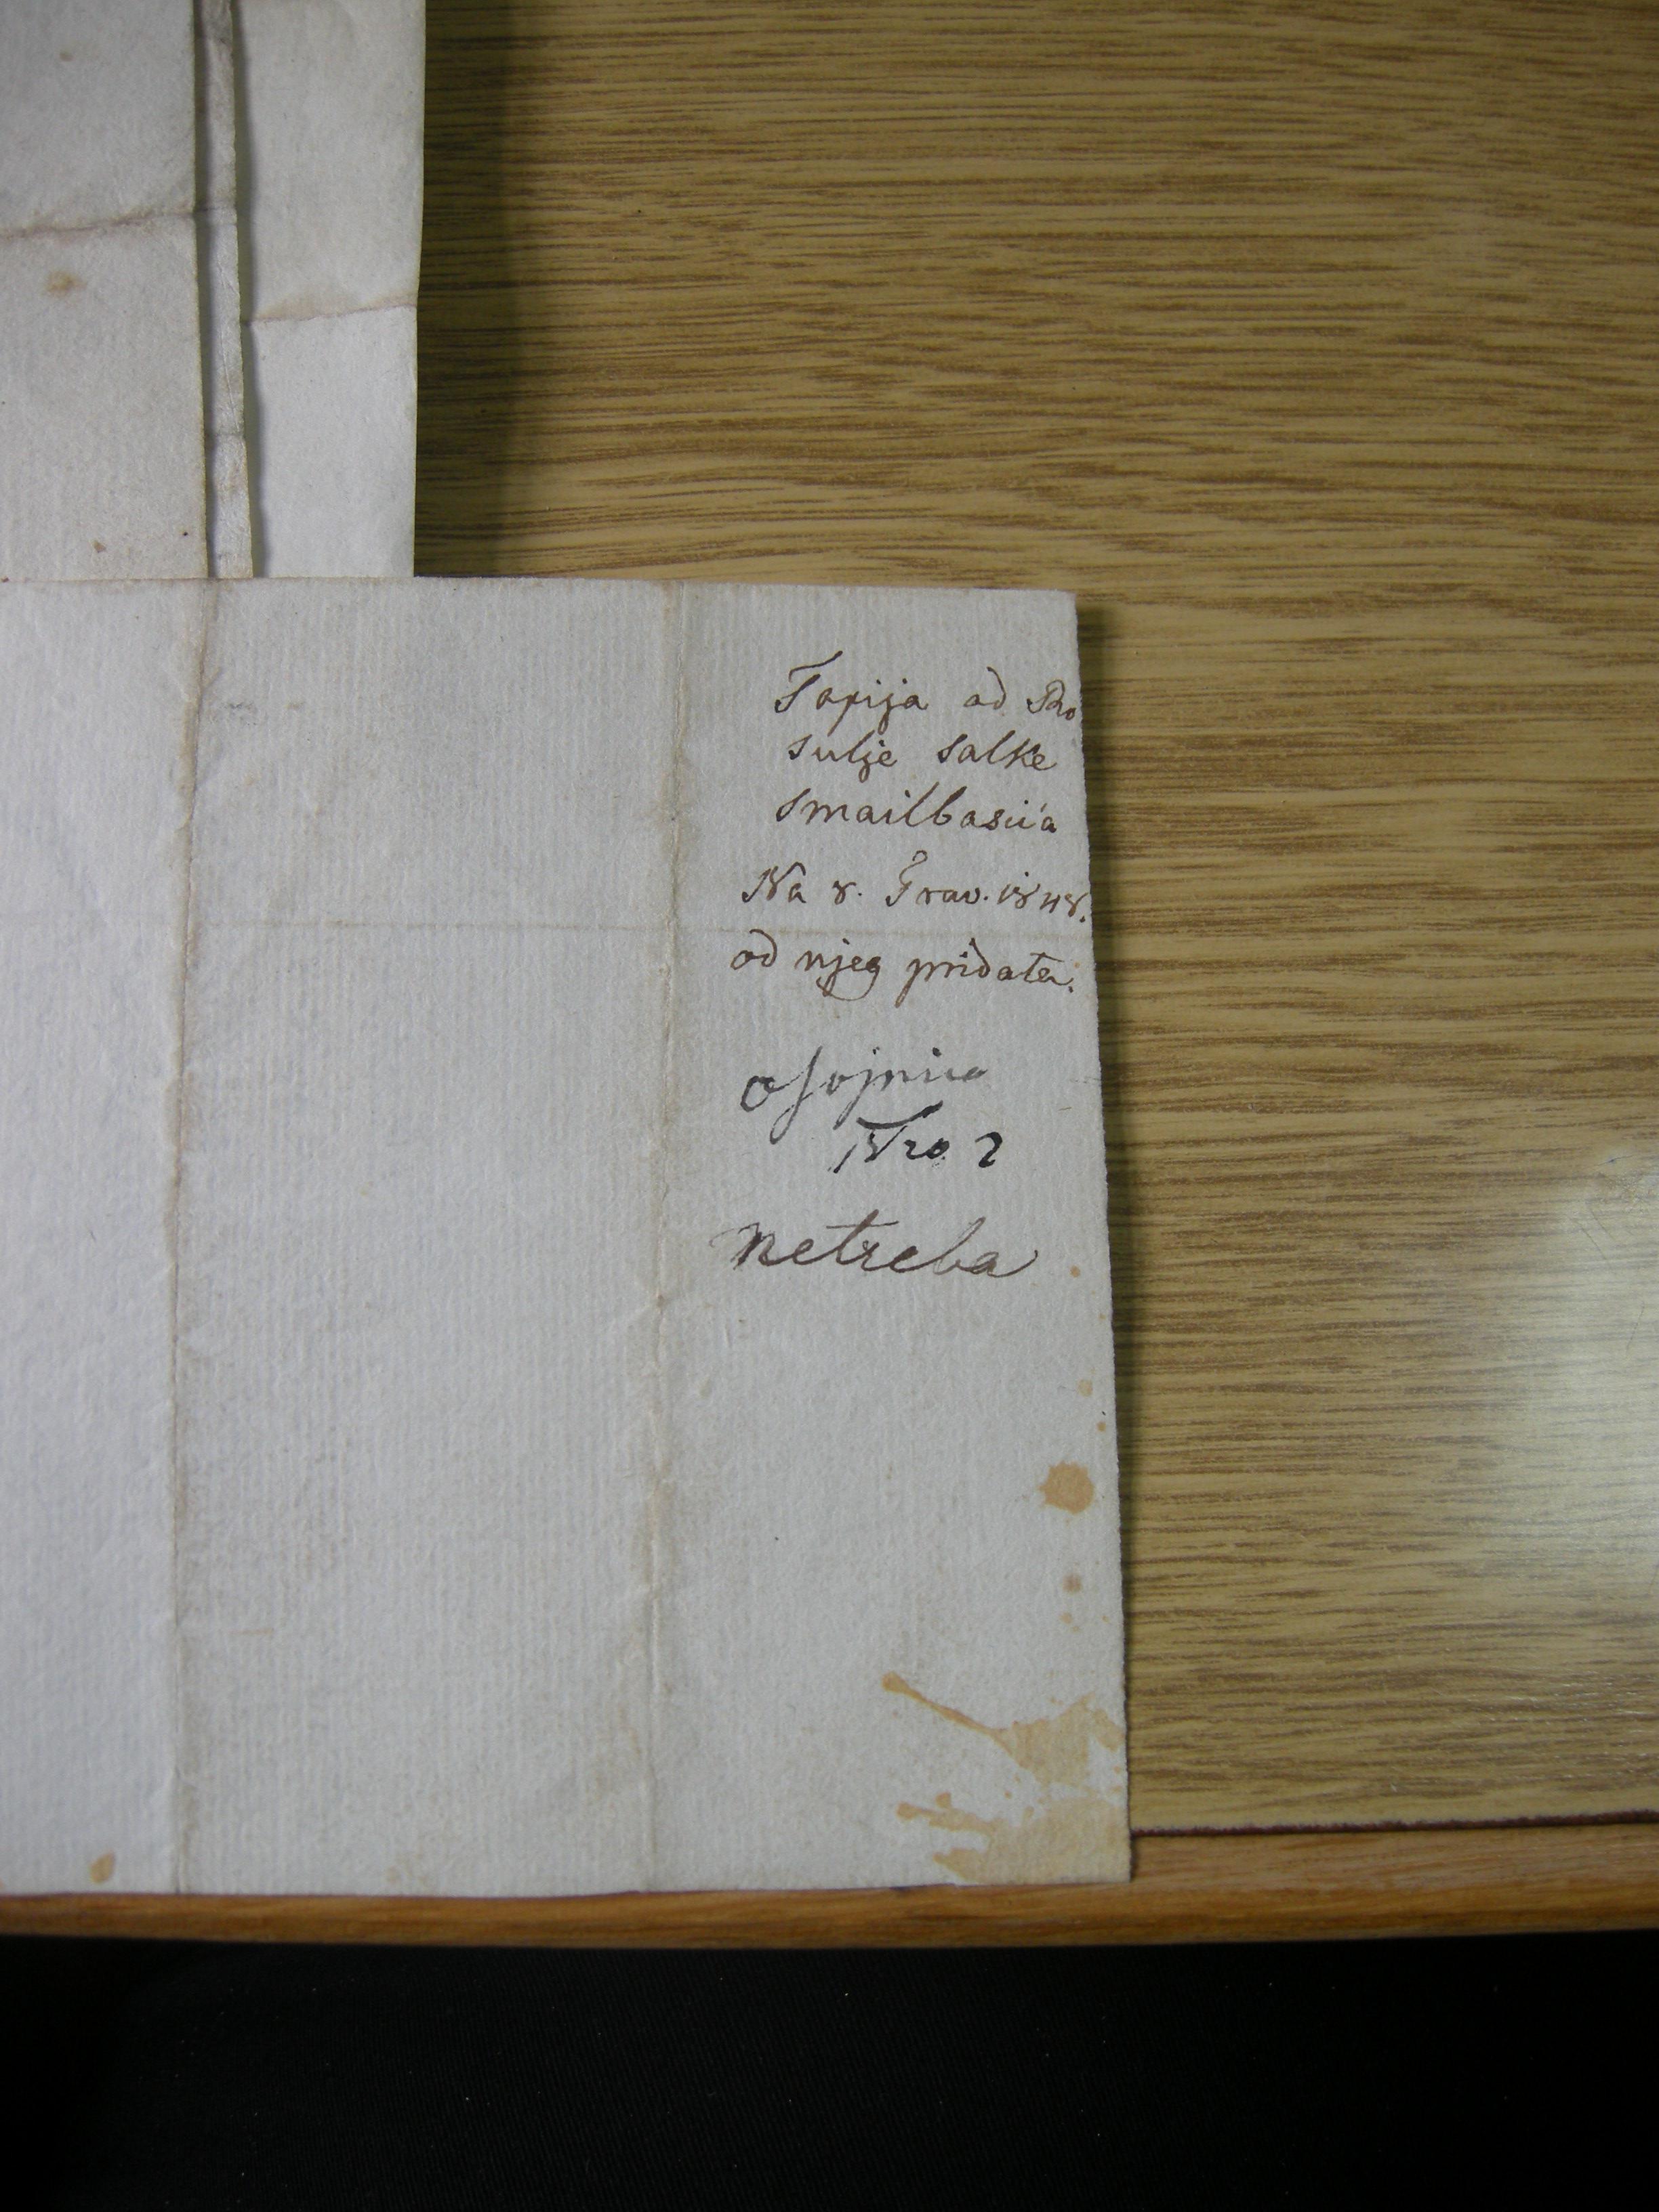 Tapija od Ro
sulje Salke
Smailbasića
Na 8. Trav. 1848.
od njeg pridata.
Osojnica
Nro 2
netreba